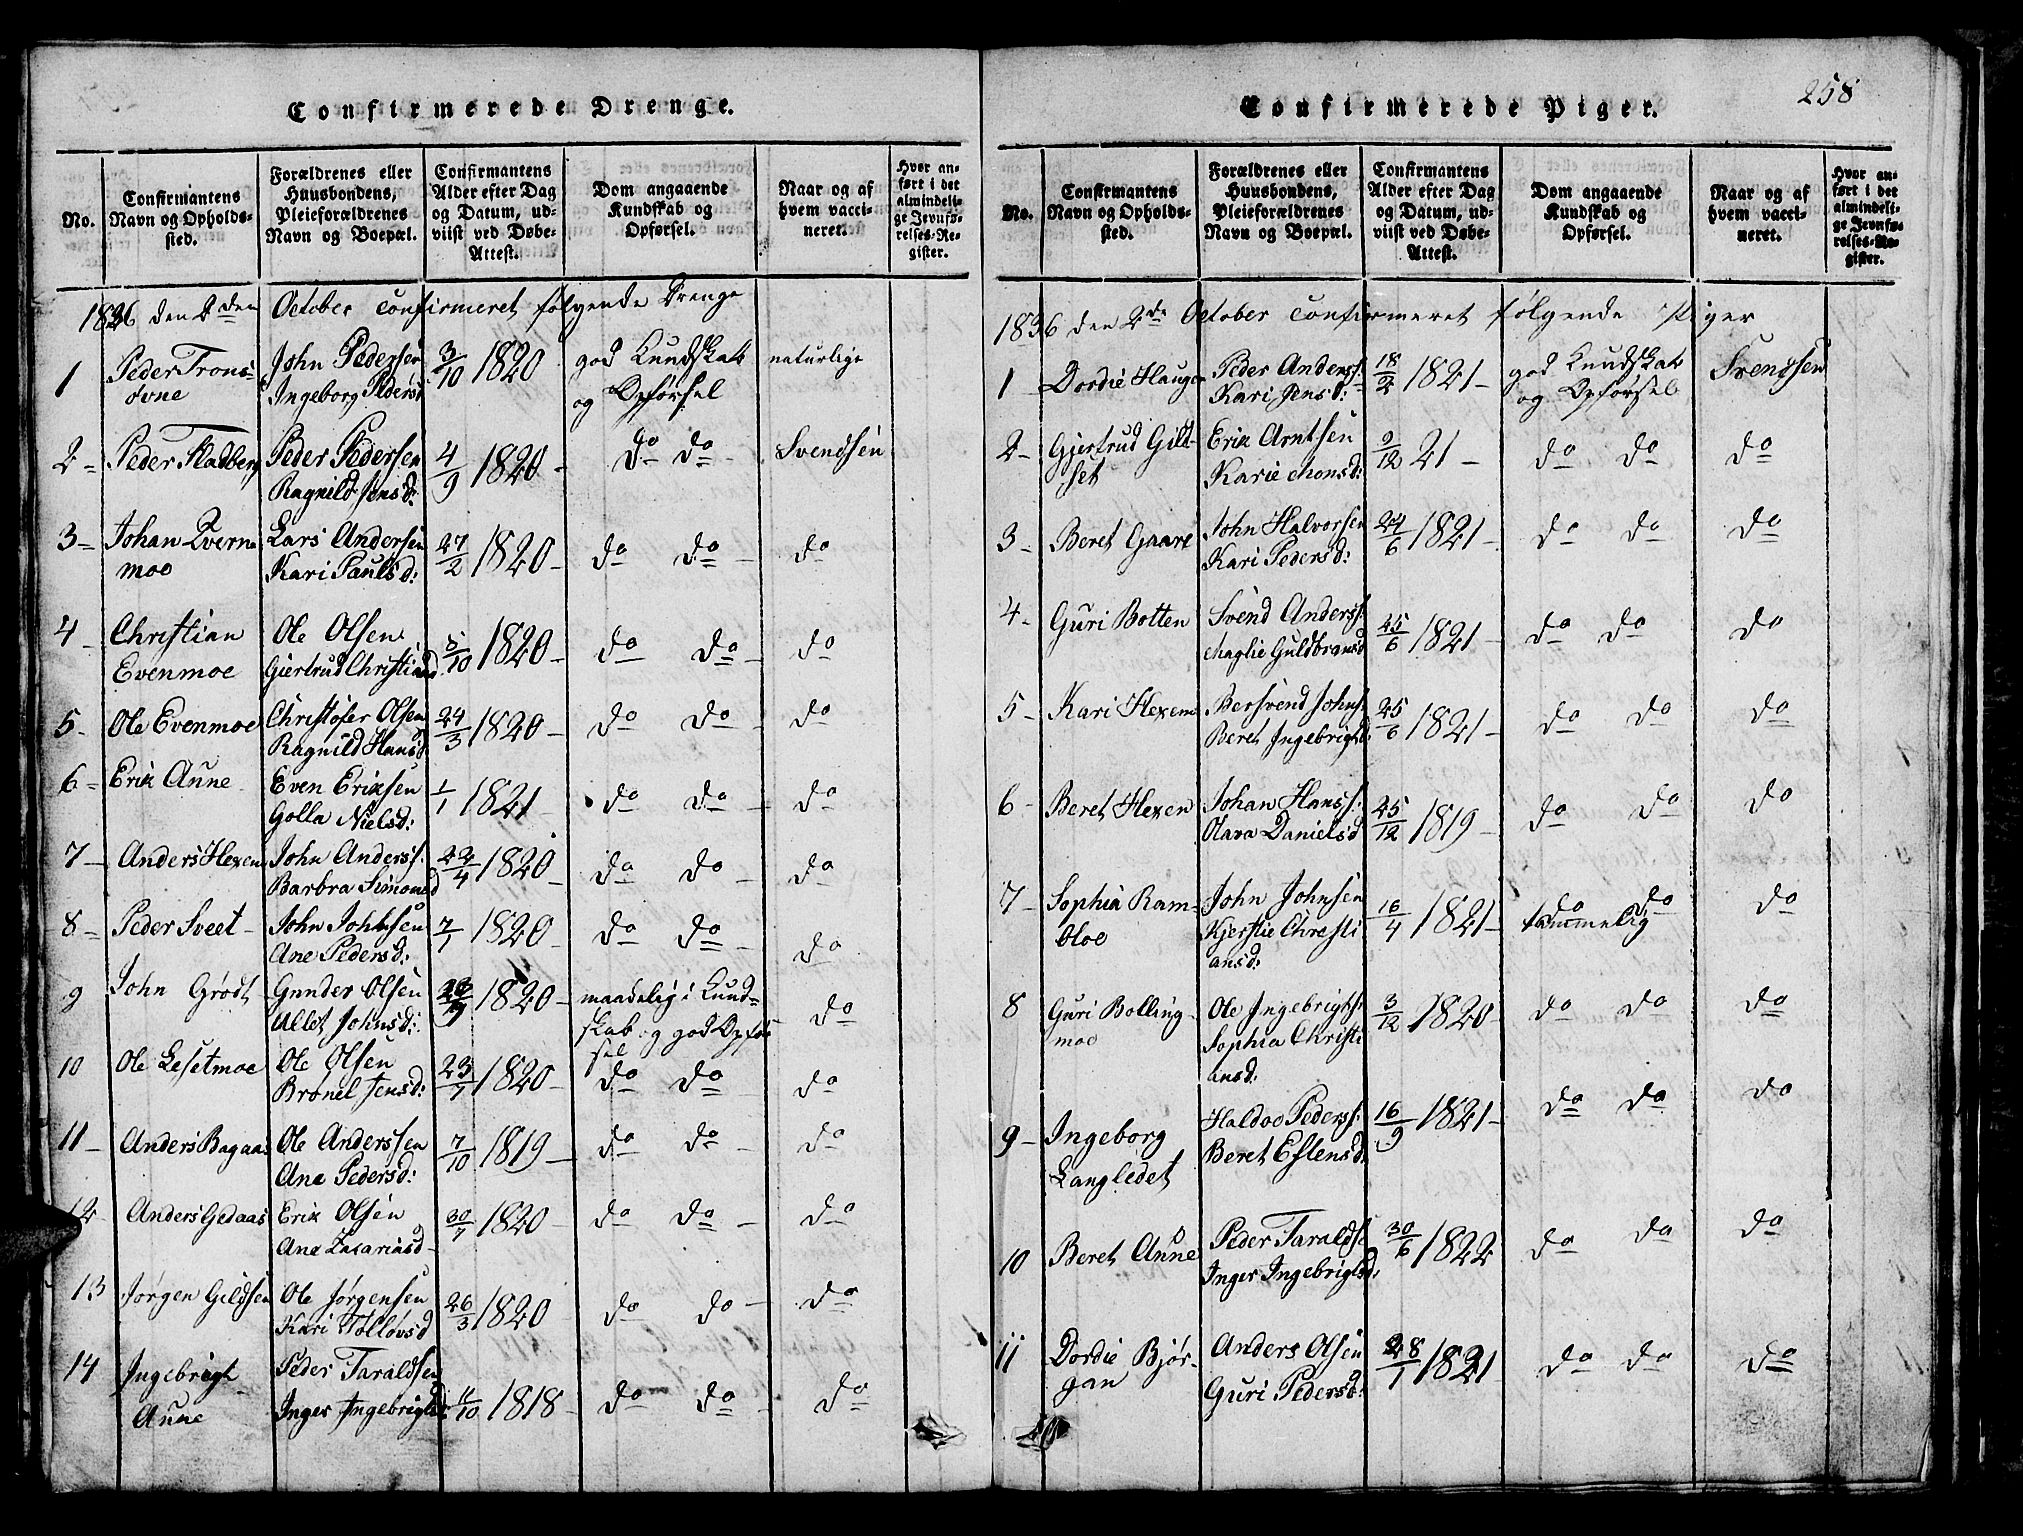 258
Confirmerede Drenge.
No.
Confirmantens Navn og Opholds-sted.
Forældrenes eller Huusbondens, Pleieforældrenes Navn og Boepæl.
Confirmantens Alder efter Dag og Datum, ud-viist ved Døbe-Attest.
Dom angaaende Kundskab og Opførsel.
Naar og af hvem vacci-neret.
Hvor an-ført i det almindeli-ge Jevnfø-relses-Re-gister.
1836 den 2den October confirmeret følgende Drenge
1 Peder Trons- John Pedersen 3/10 1820 god Kundskab naturlige
ovne Ingeborg Pedersd og Opførsel
2 Peder Stadberg Peder Pedersen 4/9 1820 do do Svendsen
Ragnild Jensd:
3 Johan Kverne Lars Andersen 27/2 1820 do do do
moe Kari Paulsd:
4 Christian Ole Olsen 5/10 1820 do do do
Evenmoe Giertrud Christiansd
5 Ole Evenmoe Christofer Olsen 24/3 1820 do do do
Ragnild Hansd
6 Erik Aune Even Eriksen 1/1 1821 do do do
Golla Nielsd:
7 Anders Hexem John Anderss. 22/4 1820 do do do
Barbra Simonsd
8 Peder Sveet John Johnsen 7/1 1820 do do do
Ane Pedersd:
9 John Grødt Gunder Olsen 1820 maadelig i Kund- do
Ullet Johnsd: skab og god Opfør
sel
10 Ole Lesetmoe Ole Olsen 23/7 1820 do do do
Bronel Jensd:
11 Anders Bagaas Ole Anderssen 7/10 1819 do do do
Ane Pedersd:
12 Anders Gedaas Erik Olsen 30/7 1820 do do do
Ane Zacariasd
13 Jørgen Gildsen Ole Jørgensen 26/3 1820 do do do
Kari Tollovsd
14 Ingebrigt Peder Taraldsen 11/10 1818 do do do
Aune Inger Ingebrigtsd:
Confirmerede Piger.
No.
Confirmantens Navn og Opholds-sted.
Forældrenes eller Huusbondens, Pleieforældrenes Navn og Boepæl.
Confirmantens Alder efter Dag og Datum, ud-viist ved Døbe-Attest.
Dom angaaende Kundskab og Opførsel.
Naar og af hvem vacci-neret.
Hvor an-ført i det almindeli-ge Jevnfø-relses-Re-gister.
1836 den 2de October confirmeret følgende Piger
1 Dordie Haugen Peder Anderss: 18/2 1821 god Kundskab Svendsen
Kari Jensd: og Opførsel
2 Gjertrud Gilt- Erik Arntsen 9/12 21 do do do
set Karie Monsd:
3 Beret Gaare John Halvorsen 24/6 1821 do do do
Kari Pedersd:
4 Guri Botten Svend Anderss: 25/6 1821 do do do
Maglie Guldbransd
5 Kari Hexem Bersvend Johns: 25/6 1821 do do do
Beret Ingebrigtsd:
6 Beret Hexen Johan Hanss: 25/12 1819 do do do
Mara Danielsd
7 Sophia Ram- John Johnsen 16/4 1821 do do do
bloe Kjerstie Christi temmelig
ansd:
8 Guri Bolling- Ole Ingebrigts: 3/12 1820 do do do
moe Sophia Christi
ansd:
9 Ingeborg Haldoe Pederss: 16/9 1821 do do do
Langledet Beret Estensd:
10 Beret Aune Peder Taralds: 30/6 1822 do do do
Inger Ingebrigtsd:
11 Dordie Bjør- Anders Olsen 28/1 1821 do do do
gan Guri Pedersd: